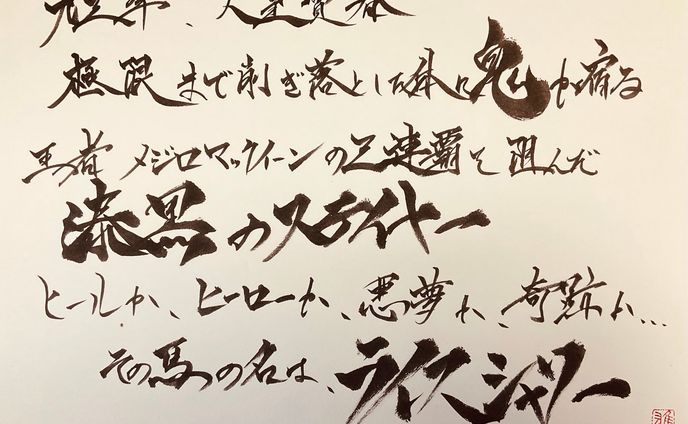 九三年、天皇賞春
極限まで削ぎ落とした体に鬼が宿る
王者メジロマックイーンの三連覇を阻んだ
漆黒のステイヤー
ヒールか、ヒーローか、悪夢か、奇跡か...
その馬の名は、ライスシャワー